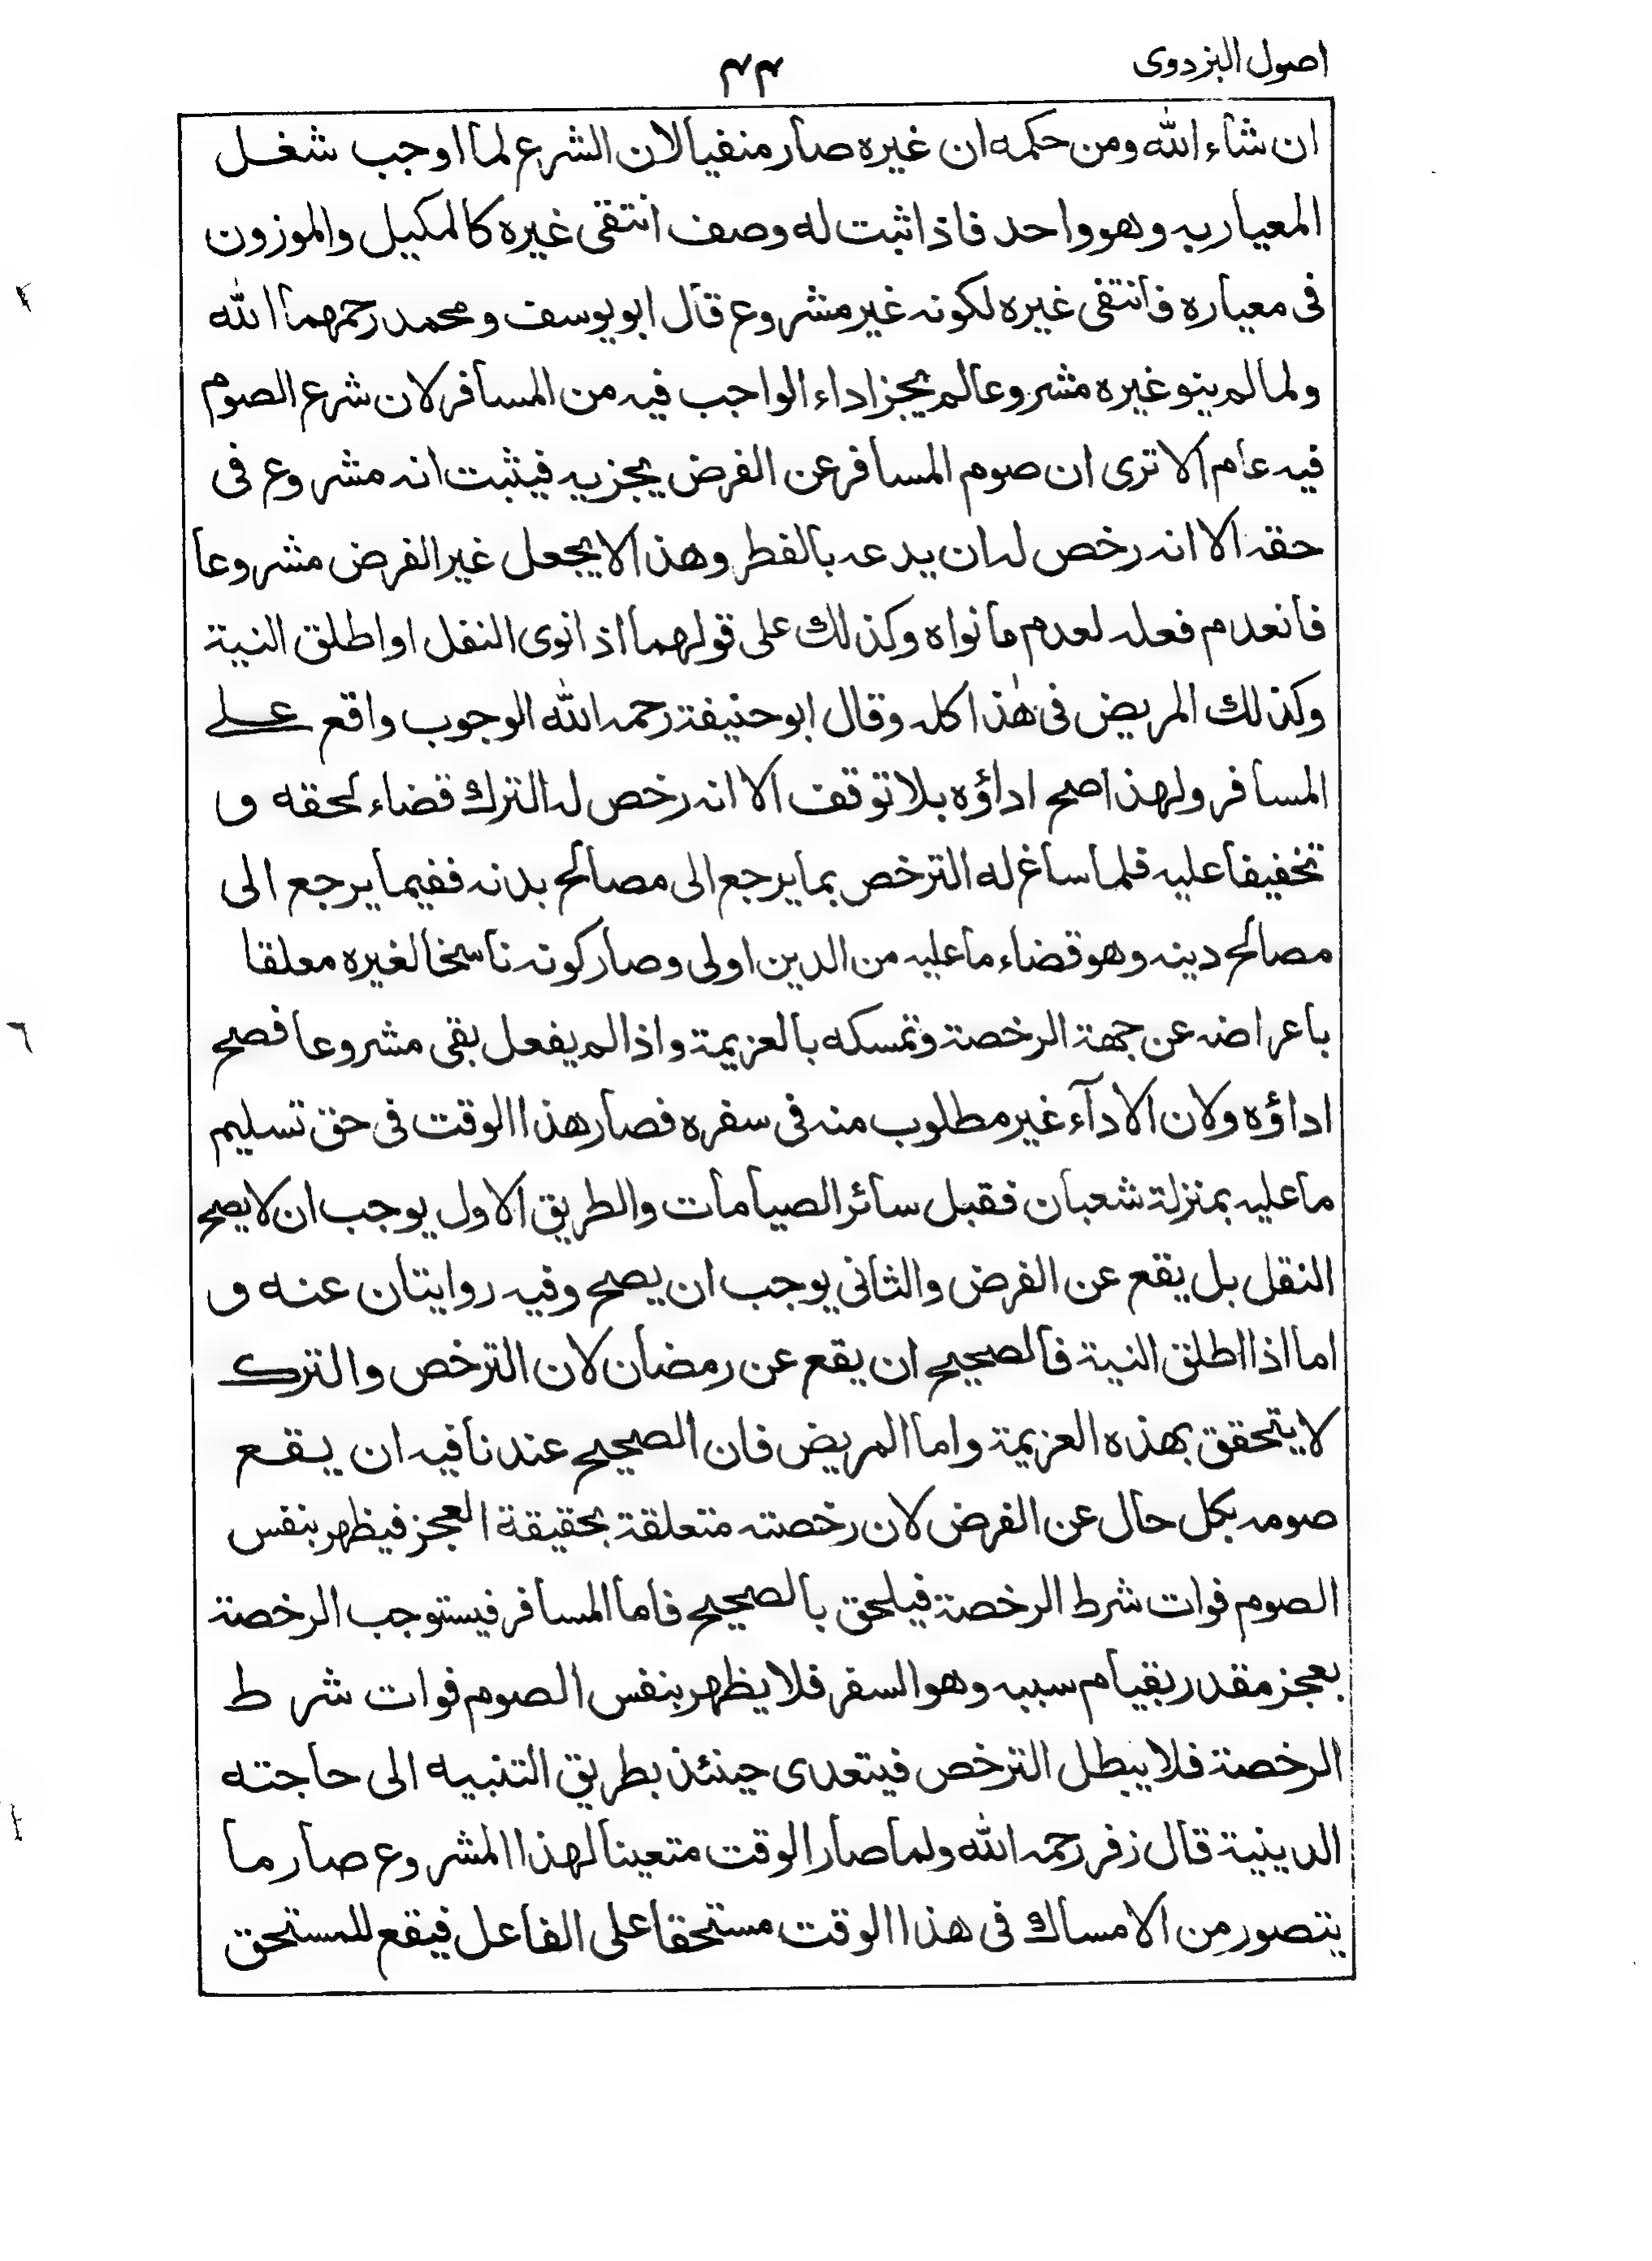 اصول البزدوی
۴۴
ان شاء الله ومن حكمه ان غيره صار منفيا لان الشرع لما اوجب شغل
المعيار به وهو واحد فاذا ثبت له وصف انتقى غيره كالمكيل والموزون
فى معياره فانتفى غيره لكونه غير مشروع قال ابو يوسف ومحمد رحمهما الله
ولما لم ينو غيره مشروعا لم يجز اداء الواجب فيه من المسافر لان شرع الصوم
فيه عام الا ترى ان صوم المسافر عن الفرض يجزيه فيثبت انه مشروع فى
حقه الا انه رخص له ان يدعه بالفطر وهذا لا يجعل غير الفرض مشروعا
فانعدم فعله لعدم ما نواه وكذلك على قولهما اذا نوى النفل او اطلق النية
وكذلك المريض فى هٰذا كله وقال ابو حنيفة رحمه الله الوجوب واقع على
المسافر ولهذا صح اداؤه بلا توقف الا انه رخص له الترك قضاء لحقه و
تخفيفا عليه فلما ساغ له الترخص بما يرجع الى مصالح بدنه ففيما يرجع الى
مصالح دينه وهو قضاء ما عليه من الدين اولى وصار كونه ناسخا لغيره معلقا
باعراضه عن جهة الرخصة وتمسكه بالعزيمة واذا لم يفعل بقى مشروعا فصح
اداؤه ولان الادآء غير مطلوب منه فى سفره فصار هذا الوقت فى حق تسليم
ما عليه بمنزلة شعبان فقبل سائر الصيامات والطريق الاول يوجب ان لا يصح
النقل بل يقع عن الفرض والثانى يوجب ان يصح وفيه روايتان عنه و
اما اذا اطلق النية فالصحيح ان يقع عن رمضان لان الترخص والترك
لا يتحقق بهذه العزيمة واما المريض فان الصحيح عندنا فيه ان يقع
صومه بكل حال عن الفرض لان رخصته متعلقة بحقيقة العجز فيظهر بنفس
الصوم فوات شرط الرخصة فيلحق بالصحيح فاما المسافر فيستوجب الرخصة
بعجز مقدر بقيام سببه وهو السفر فلا يظهر بنفس الصوم فوات شرط
الرخصة فلا يبطل الترخص فيتعدى حينئذ بطريق التنبيه الى حاجته
الدينية قال زفر رحمه الله ولما صار الوقت متعينا لهذا المشروع صار ما
يتصور من الامساك فى هذا الوقت مستحقا على الفاعل فيقع للمستحق